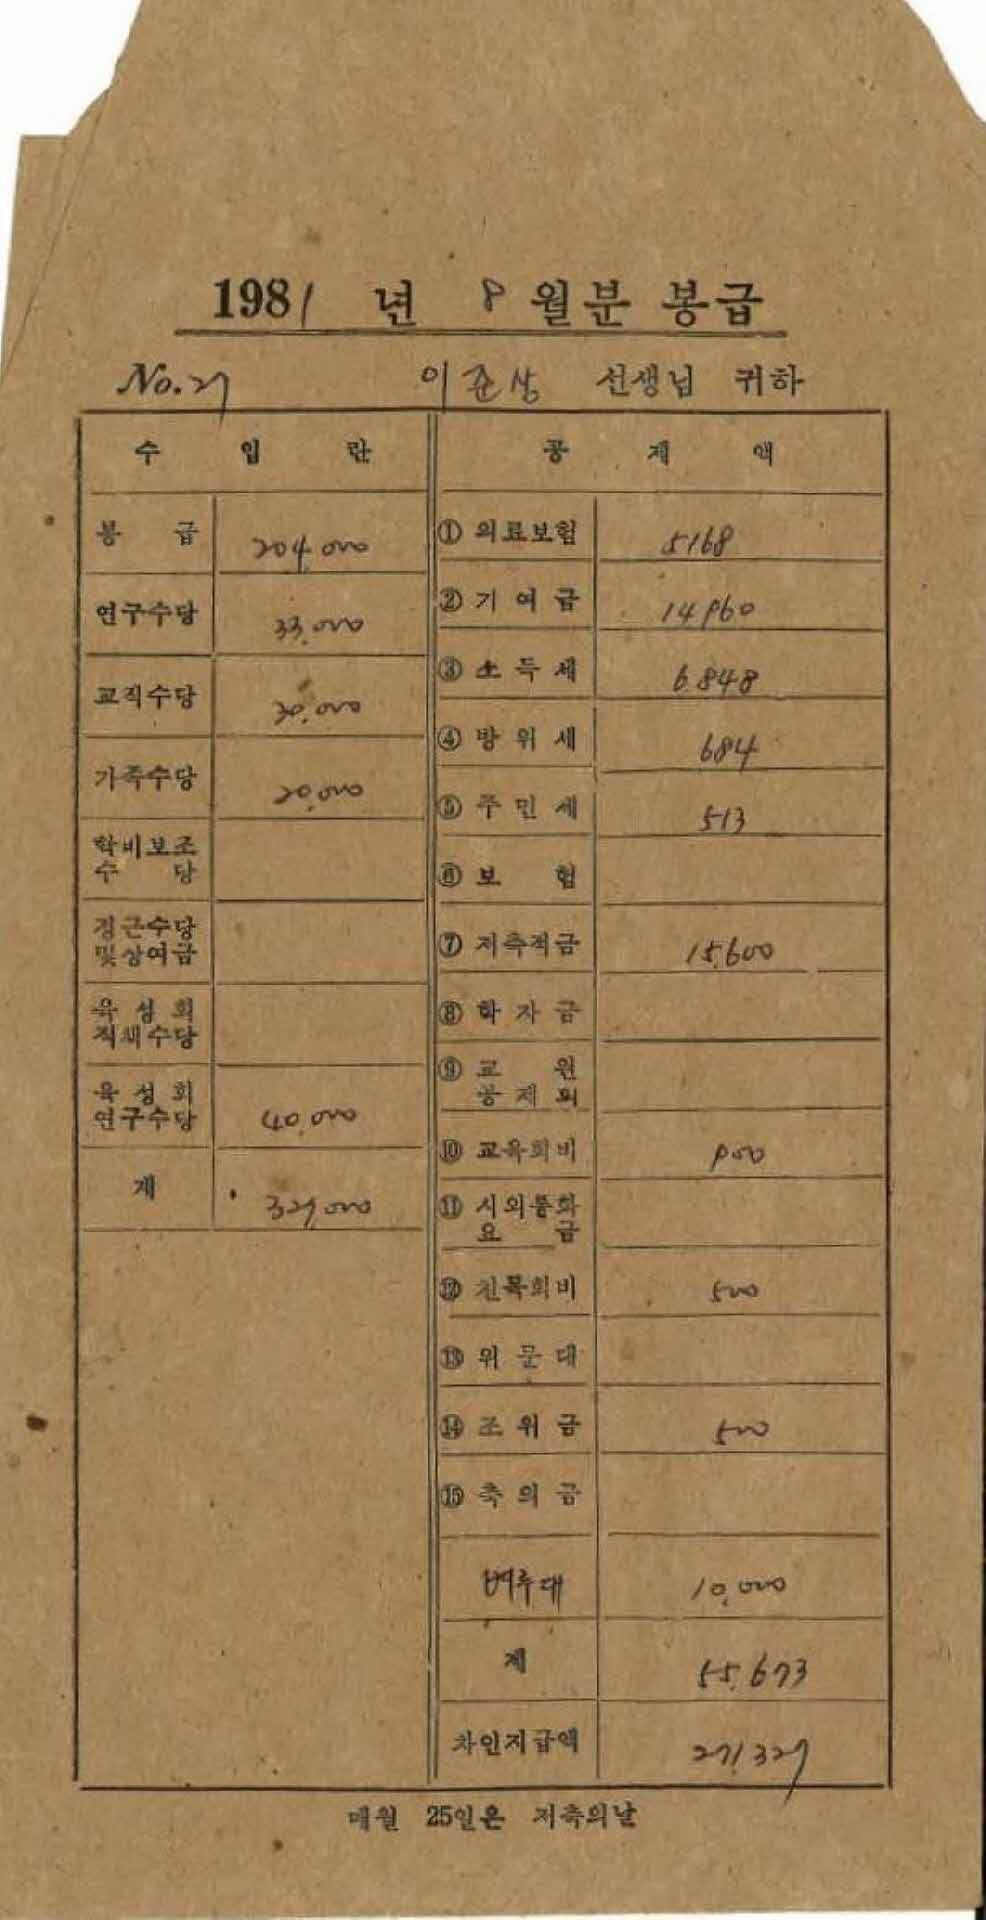 1981 년 8 월분 봉급
No.27 이준상 선생님 귀하
수 입 란
봉 급 204,000
연구수당 33,000
교직수당 30,000
가족수당 20,000
학비보조
수 당
정근수당
및상여금
육성회
직책수당
육성회
연구수당 40,000
계 327,000
공 제 액
① 의료보험 5168
② 기여금 14960
③ 소득세 6848
④ 방위세 684
⑤ 주민세 513
⑥ 보 험
⑦ 저축적금 15,600
⑧ 학자금
⑨ 교 원
공제회
⑩ 교육회비 900
⑪ 시외통화
요 금
⑫ 친목회비 500
⑬ 위문대
⑭ 조위금 500
⑮ 축의금
벼루대 10,000
계 55,673
차인지급액 271,327
매월 25일은 저축의날